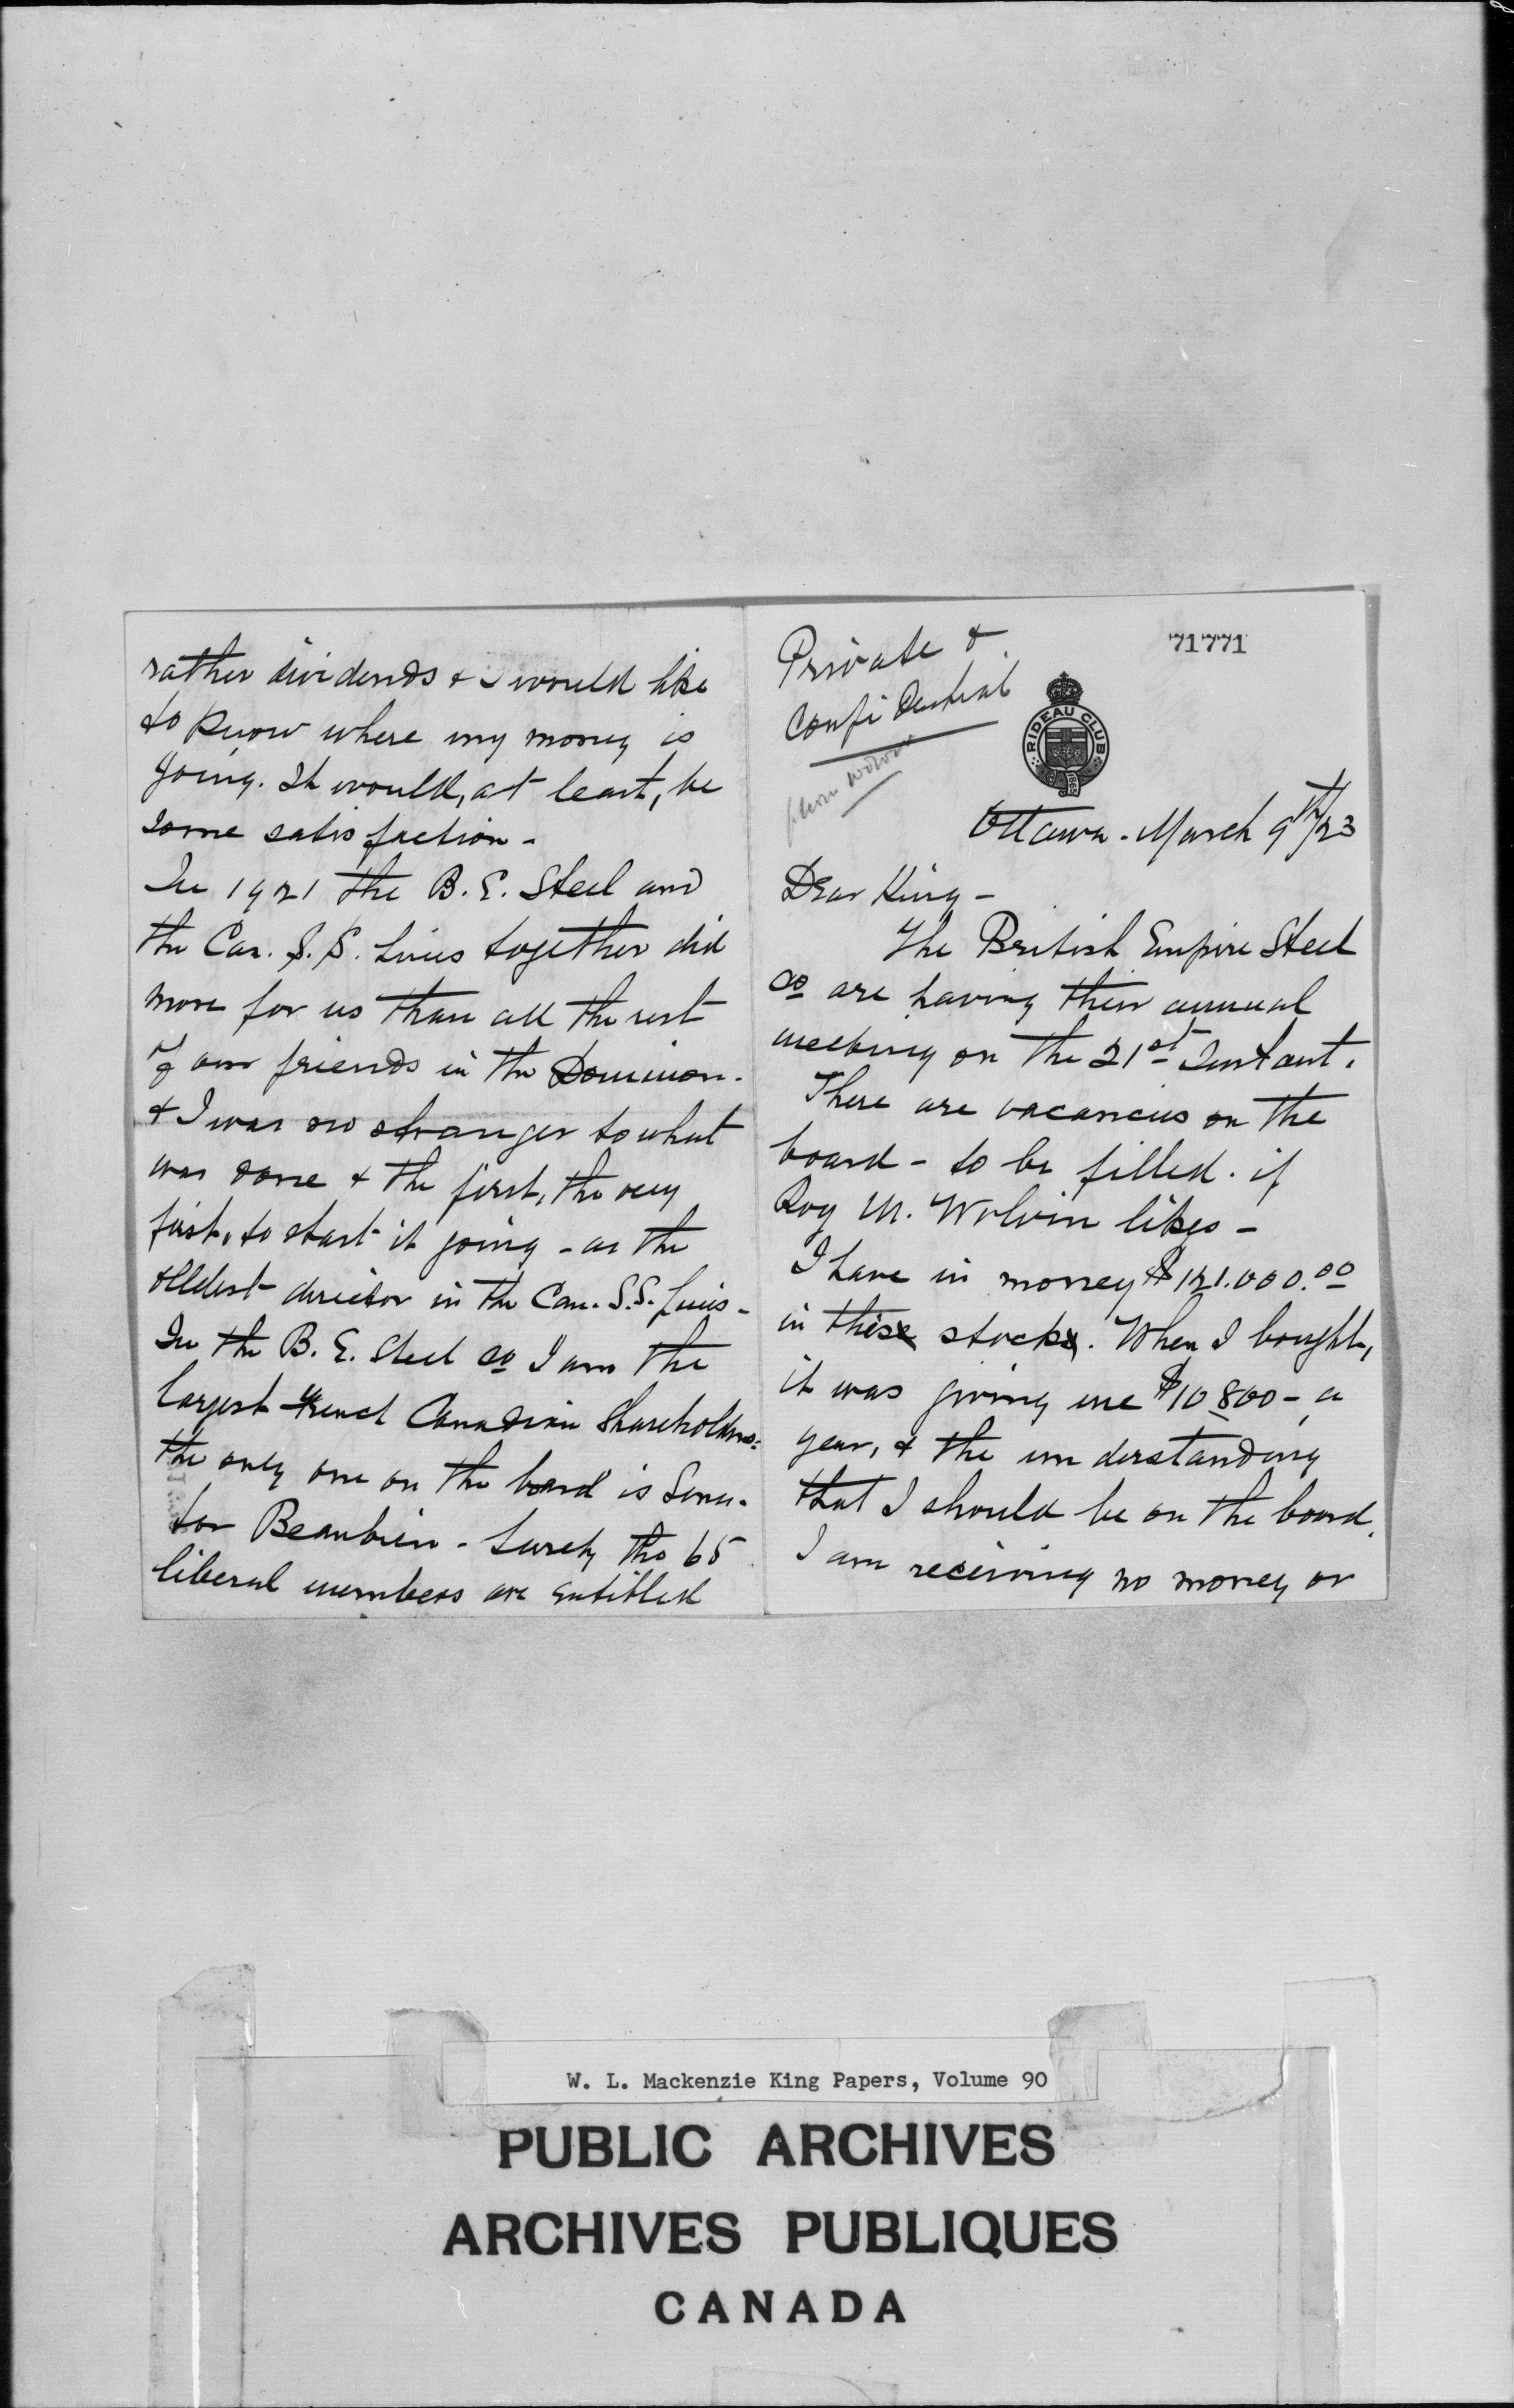 71771
Private &
Confidential
RIDEAU CLUB
Ottawa. March 9th/23
Dear King -
The British Empire Steel
Co are having their annual
meeting on the 21st Instant.
There are vacancies on the
board - to be filled. if
Roy M. Wolvin likes -
I have in money $121.000.00
in this stock. When I bought,
it was giving me $10800 - a
year, & the understanding
that I should be on the board.
I am receiving no money or
rather dividends & I would like
to know where my money is
going. It would, at least, be
some satisfaction -
In 1921 the B. E. Steel and
the Can. S. S. Lines together did
more for us than all the rest
of our friends in the Dominion -
& I was no stranger to what
was done & the first, the very
first, to start it going - as the
oldest director in the Can. S.S. Lines -
In the B. E. Steel Co I am the
largest French Canadian Shareholder:
the only one on the board is Sena-
tor Beaubien - Surely the 65
liberal members are entitled
W. L. Mackenzie King Papers, Volume 90
PUBLIC ARCHIVES
ARCHIVES PUBLIQUES
CANADA